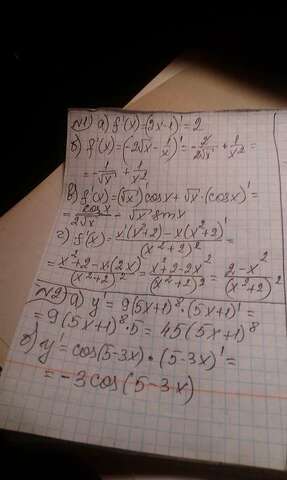 №1) а) f'(x)=(2x-1)'=2
б) f'(x)=(-2√x - 1/x)'= -2/(2√x) + 1/x² =
= -1/√x + 1/x²
в) f'(x)=(√x)'cosx + √x·(cosx)'=
= cosx/(2√x) - √x sinx
г) f'(x)= (x'(x²+2)-x(x²+2)')/(x²+2)² =
= (x²+2-x(2x))/(x²+2)² = (x²+2-2x²)/(x²+2)² = (2-x²)/(x²+2)²
№2) а) y' = 9(5x+1)⁸·(5x+1)'=
= 9(5x+1)⁸·5 = 45(5x+1)⁸
б) y' = cos(5-3x)·(5-3x)'=
= -3cos(5-3x)